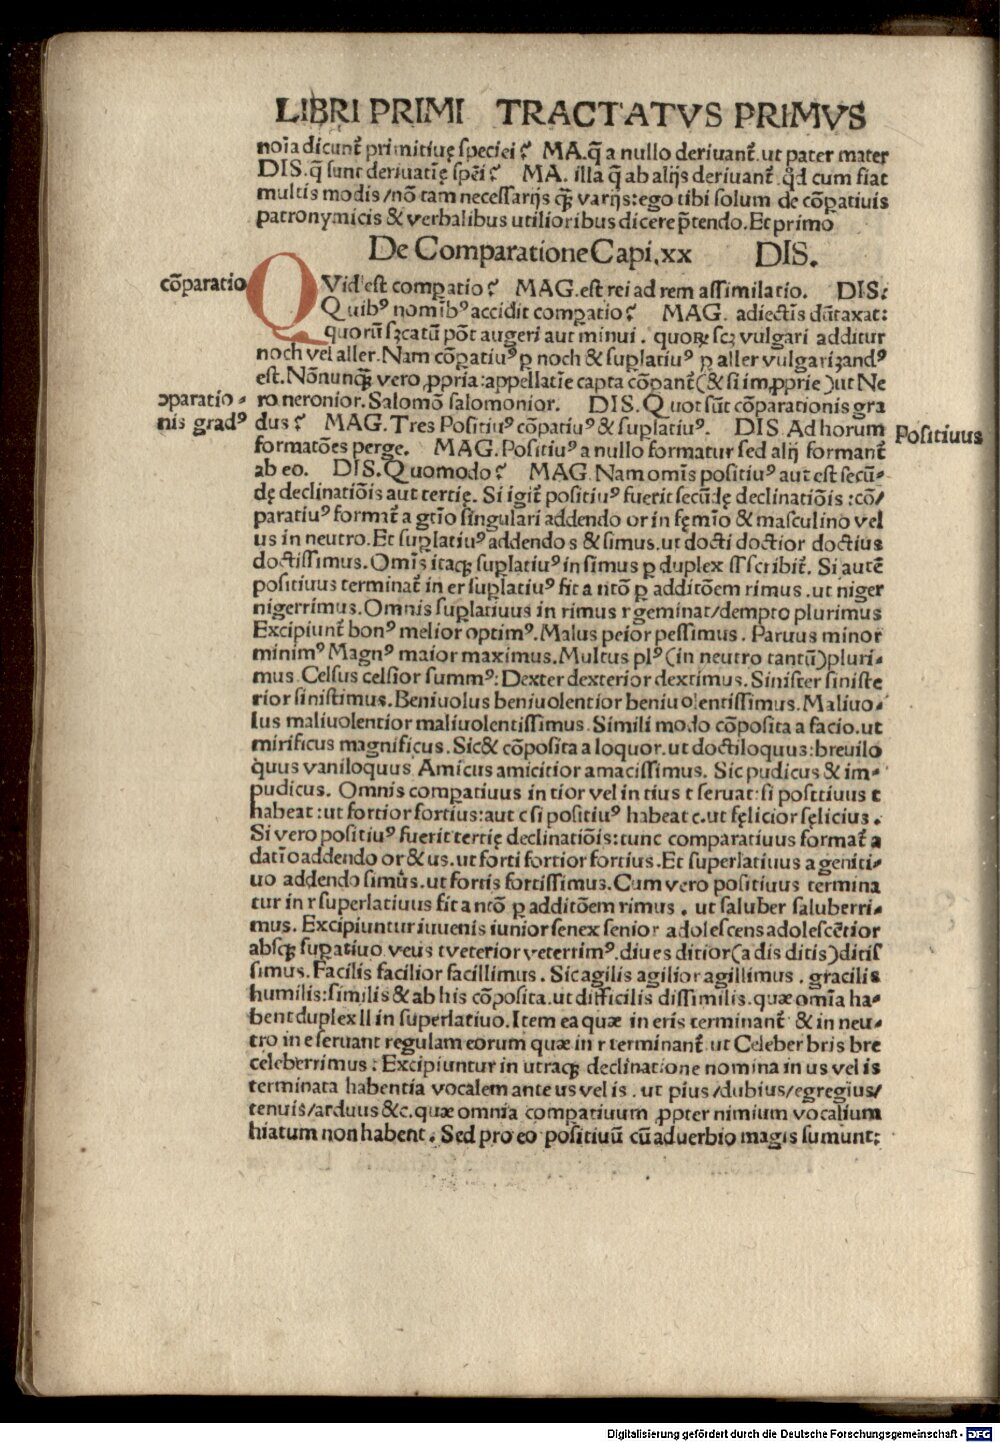 LIBRI PRIMI TRACTATVS PRIMVS
noīa dicunt᷑ primitiuę speciei? MA. q̄ a nullo deriuant᷑. ut pater mater
DIS. q̄ sunt deriuatię spēi? MA. illa q̄ ab alijs deriuant᷑. qd̄ cum fiat
multis modis/nō tam necessarijs qꝫ varijs: ego tibi solum de cōꝑatiuis
patronymicis & verbalibus utilioribus dicere p̄tendo. Et primo
De Comparatione Capi. xx DIS.
cōparatio
QVid est comꝑatio? MAG. est rei ad rem assimilatio. DIS:
Quibꝰ nomībꝰ accidit comꝑatio? MAG. adiectīs dūtaxat:
quorū sꝫcatū pōt augeri aut minui. quoꝝ scꝫ vulgari additur
noch vel aller. Nam cōꝑatiuꝰ ꝑ noch & suꝑlatiuꝰ ꝑ aller vulgarizandꝰ
est. Nōnunqꝫ vero ꝓpria: appellatīe capta cōꝑant᷑ (& si imꝓprie) ut Ne
ro neronior. Salomō salomonior. DIS. Quot sūt cōparationis gra
ꝯparatio-
nis gradꝰ
dus? MAG. Tres Positiuꝰ cōꝑatiuꝰ & suꝑlatiuꝰ. DIS Ad horum
Positiuus
formatōes perge. MAG. Positiuꝰ a nullo formatur sed alij formant᷑
ab eo. DIS. Quomodo? MAG. Nam omīs positiuꝰ aut est secū-
dę declinatiōis aut tertię. Si igit᷑ positiuꝰ fuerit secūdę declinatiōis: cō/
paratiuꝰ format᷑ a gtīo singulari addendo or in fęmīo & masculino vel
us in neutro. Et suꝑlatiuꝰ addendo s & simus. ut docti doctior doctius
doctissimus. Omīs itaqꝫ suꝑlatiuꝰ in simus ꝑ duplex ss scribit᷑. Si autē
positiuus terminat᷑ in er suꝑlatiuꝰ fit a ntō ꝑ additōem rimus. ut niger
nigerrimus. Omnis suꝑlatiuus in rimus r geminat/dempto plurimus
Excipiunt᷑ bonꝰ melior optimꝰ. Malus peior pessimus. Paruus minor
minimꝰ Magnꝰ maior maximus. Multus plꝰ (in neutro tantū) pluri-
mus Celsus celsior summꝰ: Dexter dexterior dextimus. Sinister siniste
rior sinistimus. Beniuolus beniuolentior beniuolentissimus. Maliuo-
lus maliuolentior maliuolentissimus. Simili modo cōposita a facio. ut
mirificus magnificus. Sic & cōposita a loquor. ut doctiloquus: breuilo
quus vaniloquus Amicus amicitior amacissimus. Sic pudicus & im-
pudicus. Omnis comꝑatiuus in tior vel in tius t seruat: si posttiuus t
habeat: ut fortior fortius: aut c si positiuꝰ habeat c. ut fęlicior fęlicius.
Si vero positiuꝰ fuerit tertię declinatiōis: tunc comparatiuus format᷑ a
datīo addendo or & us. ut forti fortior fortius. Et superlatiuus a geniti-
uo addendo simus. ut fortis fortissimus. Cum vero positiuus termina
tur in r superlatiuus fit a ntō ꝑ additōem rimus. ut saluber saluberri-
mus. Excipiuntur iuuenis iunior senex senior adolescens adolescētior
absqꝫ suꝑatiuo veus tveterior veterrimꝰ. diues ditior (a dis ditis) ditis
simus. Facilis facilior facillimus. Sic agilis agilior agillimus. gracilis
humilis: similis & ab his cōposita. ut difficilis dissimilis. quæ omīa ha-
bent duplex ll in superlatiuo. Item ea quæ in eris terminant᷑ & in neu-
tro in e seruant regulam eorum quæ in r terminant᷑ ut Celeber bris bre
celeberrimus: Excipiuntur in utraqꝫ declinatione nomina in us vel is
terminata habentia vocalem ante us vel is. ut pius/dubius/egregius/
tenuis/arduus &c. quæ omnia comꝑatiuum ꝓpter nimium vocalium
hiatum non habent. Sed pro eo positiuū cū aduerbio magis sumunt:
Digitalisierung gefördert durch die Deutsche Forschungsgemeinschaft - DFG